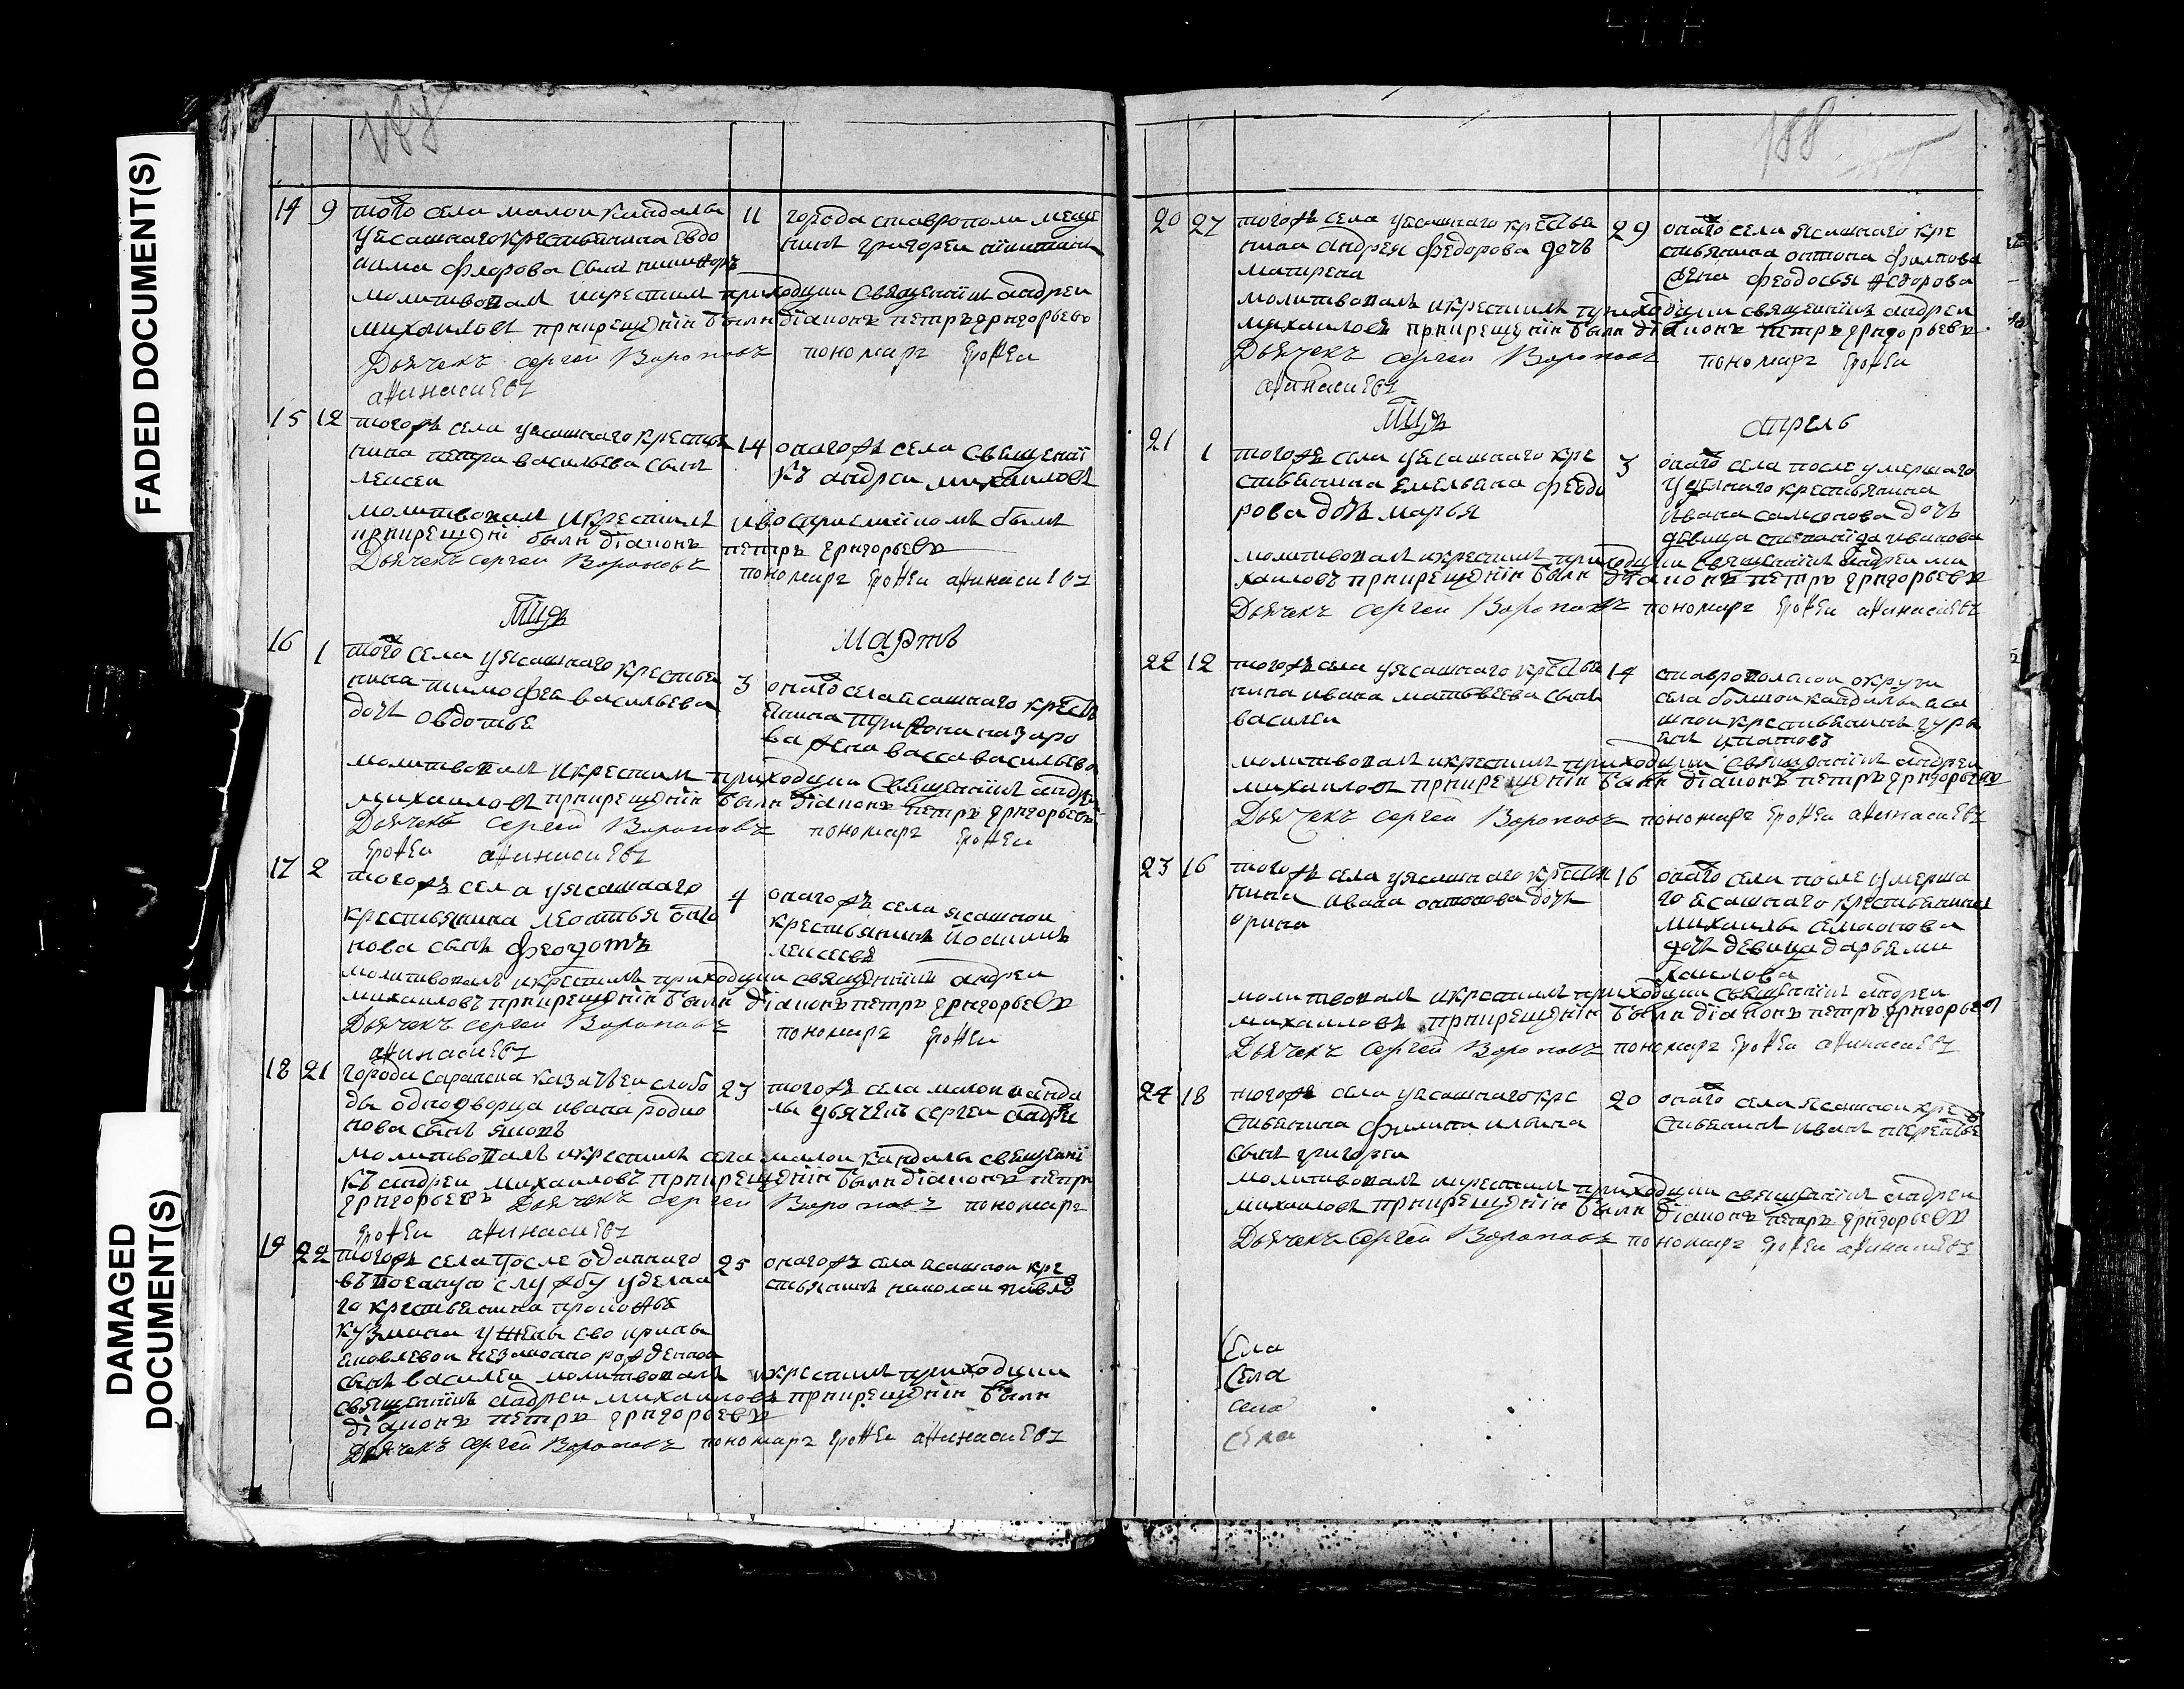 FADED DOCUMENT(S)
DAMAGED
DOCUMENT(S)
187
14 9 того села малои кандалы
уясашнаго крестьянина Евдо
кима Федорова сынъ никифоръ
11 города ставрополя меще
нинъ григореи
молитвовалъ икрестилъ приходцки священникъ андреи
михаиловъ прикрещении были діаконъ петръ григорьевъ
Дьячекъ сергей Вороновъ пономарь Ерофеи
афанасиевъ
15 12 тогожъ села уясашнаго крестья
нина петра васильева сынъ
лексеи
14 оногожъ села священни
къ андреи михаиловъ
молитвовалъ икрестилъ ивосприемникомъ былъ
прикрещении были діаконъ петръ григорьевъ
Дьячекъ сергей Вороновъ пономарь Ерофеи афанасиевъ
Мцъ Мартъ
16 1 того села уясашнаго крестья
нина тимофея васильева
дочь овдотья
3 онаго села ясашнаго крест
янина трифона назаро
ва жена васса васильева
молитвовалъ икрестилъ приходцки священникъ андреи
михаиловъ прикрещении были діаконъ петръ григорьевъ
Дьячекъ сергей Вороновъ пономарь Ерофеи
Ерофеи афанасиевъ
17 2 тогожъ села уясашнаго
крестьянина леонтья
нова сынъ феодотъ
4 оногожъ села ясашнои
крестьянинъ иоакимъ
лексеевъ
молитвовалъ икрестилъ приходцки священникъ андреи
михаиловъ прикрещении были діаконъ петръ григорьевъ
Дьячекъ сергей Вороновъ пономарь Ерофеи
афанасиевъ
18 21 города саранска казачьеи слобо
ды однодворца ивана родио
нова сынъ яковъ
23 тогожъ села малои канда
лы дьячекъ сергеи андрее
молитвовалъ икрестилъ села малои кандалы священни
къ андреи михаиловъ прикрещении были діаконъ петръ
григорьевъ Дьячекъ сергеи Вороновъ пономарь
Ерофеи афанасиевъ
19 22 тогожъ села после отданнаго
въ военную службу уделна
го крестьянина прокофья
кузмина ужены ево ирины
яковлевои незаконно рожденнои
сынъ василеи молитвовалъ икрестилъ приходцки
25 оногожъ села ясашнои кре
стьянинъ николаи павло
священникъ андреи михаиловъ прикрещении были
діаконъ петръ григорьевъ
Дьячекъ сергей Вороновъ пономарь Ерофеи афанасиевъ
188
20 27 тогожъ села уясашнаго крестья
нина андрея федорова дочь
матирена
29 онаго села ясашнаго кре
стьянина антона филпова
жена феодосья федорова
молитвовалъ икрестилъ приходцки священникъ андреи
михаиловъ прикрещении были діаконъ петръ григорьевъ
Дьячекъ сергей Вороновъ пономарь Ерофеи
афанасиевъ
Мцъ апрель
21 1 тогожъ села уясашнаго кре
стьянина емельяна феодо
рова дочь марья
3 онаго села после умершаго
уделнаго крестьянина
ивана самсонова дочь
девица степанида иванова
молитвовалъ икрестилъ приходцки священникъ андреи ми
хаиловъ прикрещении были діаконъ петръ григорьевъ
Дьячекъ сергей Вороновъ пономарь Ерофеи афанасиевъ
22 12 тогожъ села уясашнаго крестья
нина ивана матьвеева сынъ
василеи
14 ставрополскои округи
села болшои кандалы яса
шнои крестьянинъ гурь
янъ игнатовъ
молитвовалъ икрестилъ приходцки священникъ андреи
михаиловъ прикрещении были діаконъ петръ григорьевъ
Дьячекъ сергей Вороновъ пономарь Ерофеи афанасиевъ
23 16 тогожъ села уясашнаго крестья
нина ивана антонова дочь
орина
16 онаго села после умерша
го ясашнаго крестьянина
михаилы симонова
дочь девица дарья ми
хаилова
молитвовалъ икрестилъ приходцки священникъ андреи
михаиловъ прикрещении были діаконъ петръ григорьевъ
Дьячекъ сергей Вороновъ пономарь Ерофеи афанасиевъ
24 18 тогожъ села уясашнаго кре
стьянина филипа ильина
сынъ григореи
20 онаго села ясашнои кре
стьянинъ иванъ
молитвовалъ икрестилъ приходцки священникъ андреи
михаиловъ прикрещении были діаконъ петръ григорьевъ
Дьячекъ сергей Вороновъ пономарь Ерофеи афанасиевъ
Села
Села
села
села